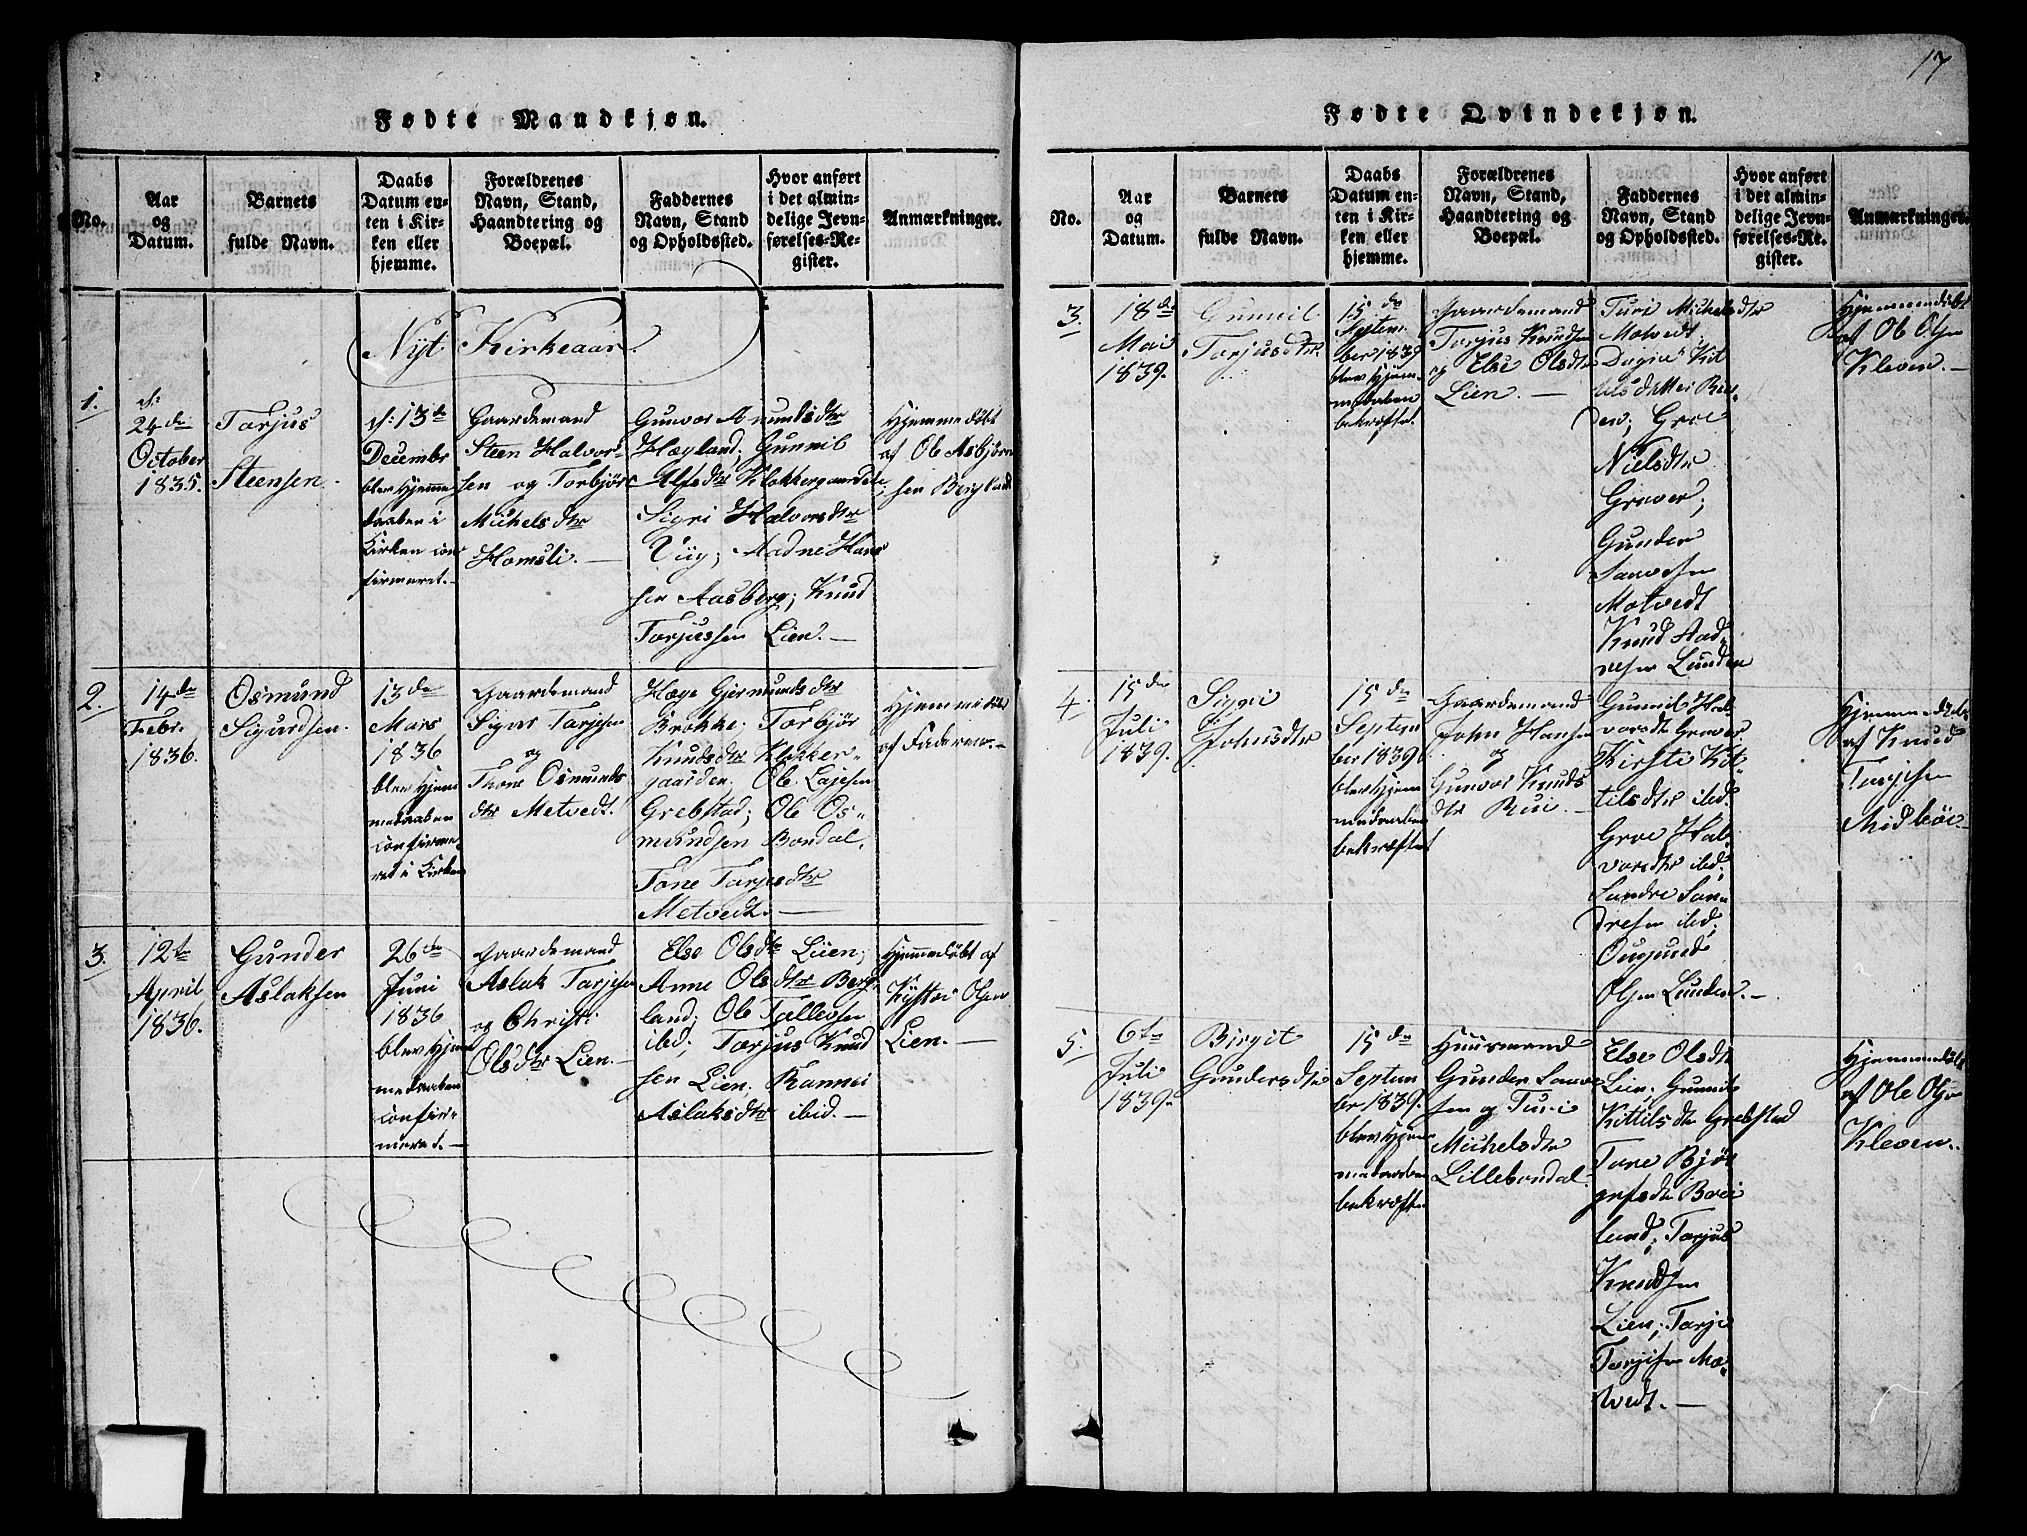 17
Fødte Mandkjøn.
No.
Aar
og
Datum.
Barnets
fulde Navn.
Daabs
Datum en-
ten i Kir-
ken eller
hjemme.
Forældrenes
Navn, Stand,
Haandtering og
Boepæl.
Faddernes
Navn, Stand
og Opholdssted.
Hvor anført
i det almin-
delige Jevn-
førelses-Re-
gister.
Anmærkninger.
Nyt Kirkeaar.
1.
24de
October
1835.
Torjus
Steensen.
13de
Decembr
blev hjemme
daaben i
Kirken con
firmeret.
Gaardemand
Steen Halvor-
sen og Torbjør
Michelsdtr
Homsli.
Gunvor Amundsdtr
Høyland; Gunnil
Alfsdtr Klokkergaarden;
Sigri Halvorsdtr
Viig; Aadne Hans
sen Aasberg; Knud
Torjussen Lien.
Hjemmedøbt
af Ole Asbjørn
sen Bergland
2.
14de
Febr.
1836.
Osmund
Sigurdsen.
13de
Mars
1836
blev hjem
medaaben
confirme
ret i Kirken
Gaardemand
Sigur Tarjesen
og
Thone Osmunds
dtr Metvedt.
Høge Gjermundsdtr
Brokke; Torbjør
Knudsdtr Klokker-
gaarden. Ole Lajesen
Grebstad; Ole Os-
mundsen Bondal.
Tone Tarjesdtr
Metvedt.
Hjemmedøbt
af Faderen.
3.
12te
April
1836.
Gunder
Aslaksen
26de
Juni
1836
blev hjem
medaaben
confir-
meret.
Gaardemand
Aslak Tarjesen
og Christi
Olsdtr Lien.
Else Olsdtr Lien;
Anne Olsdtr Berg
land; Ole Tallevsen
ibd; Torjus Knud
sen Lien. Rannei
Aslaksdtr ibid.
Hjemmedøbt af
Kystei Olsen
Lien.
Fødte Qvindekjøn.
No.
Aar
og
Datum.
Barnets
fulde Navn.
Daabs
Datum en-
ten i Kir-
ken eller
hjemme.
Forældrenes
Navn, Stand,
Haandtering og
Boepæl.
Faddernes
Navn, Stand
og Opholdssted.
Hvor anført
i det almin-
delige Jevn-
førelses-Re-
gister.
Anmærkninger.
3.
18de
Mai
1839.
Gunnil
Torjusdtr.
15de
Septem
ber 1839
blev hjem-
medaaben
bekræftet.
Gaardemand
Torjus Knudsen
og Else Olsdtr
Lien.
Turi Michelsdtr
Motvedt
Dagne Kit
tilsdatter Bon-
den; Groe
Nielsdtr
Grover;
Gunder
Sanvesen
Motvedt
Knud Aad-
nesen Lunden
Hjemmedøbt
af Ole Olsen
Kleven.
4.
15de
Juli
1839.
Signi
Johnsdtr
15de
Septem
ber 1839
blev hjem
medaaben
bekræftet
Gaardemand
John Hansen
og
Gunvor Knuds
dtr Rui.
Gunnil Hal-
vorsdtr Grover
Kirsti Kit-
tilsdtr ibid.
Groe Hal-
vorsdtr ibid;
Sandre San-
dresen ibid;
Ougund
Olsen Lunden.
Hjemmedøbt
af Knud
Tarjesen
Midbøe
5.
6te
Juli
1839.
Birgit
Gundersdtr
15de
Septem
ber 1839.
blev hjem
medaaben
bekræftet
Huusmand
Gunder Sanve
sen og Turi
Michelsdtr
Lillebondal.
Else Olsdtr
Lien; Gunnil
Kittilsdtr Grebstad
Tone Bjøl
gefsdtr Brei
land; Torjus
Knudsen
Lien; Tarje
Tarjesen Mo-
tvedt.
Hjemmedøbt
af Ole Olsen
Kleven.